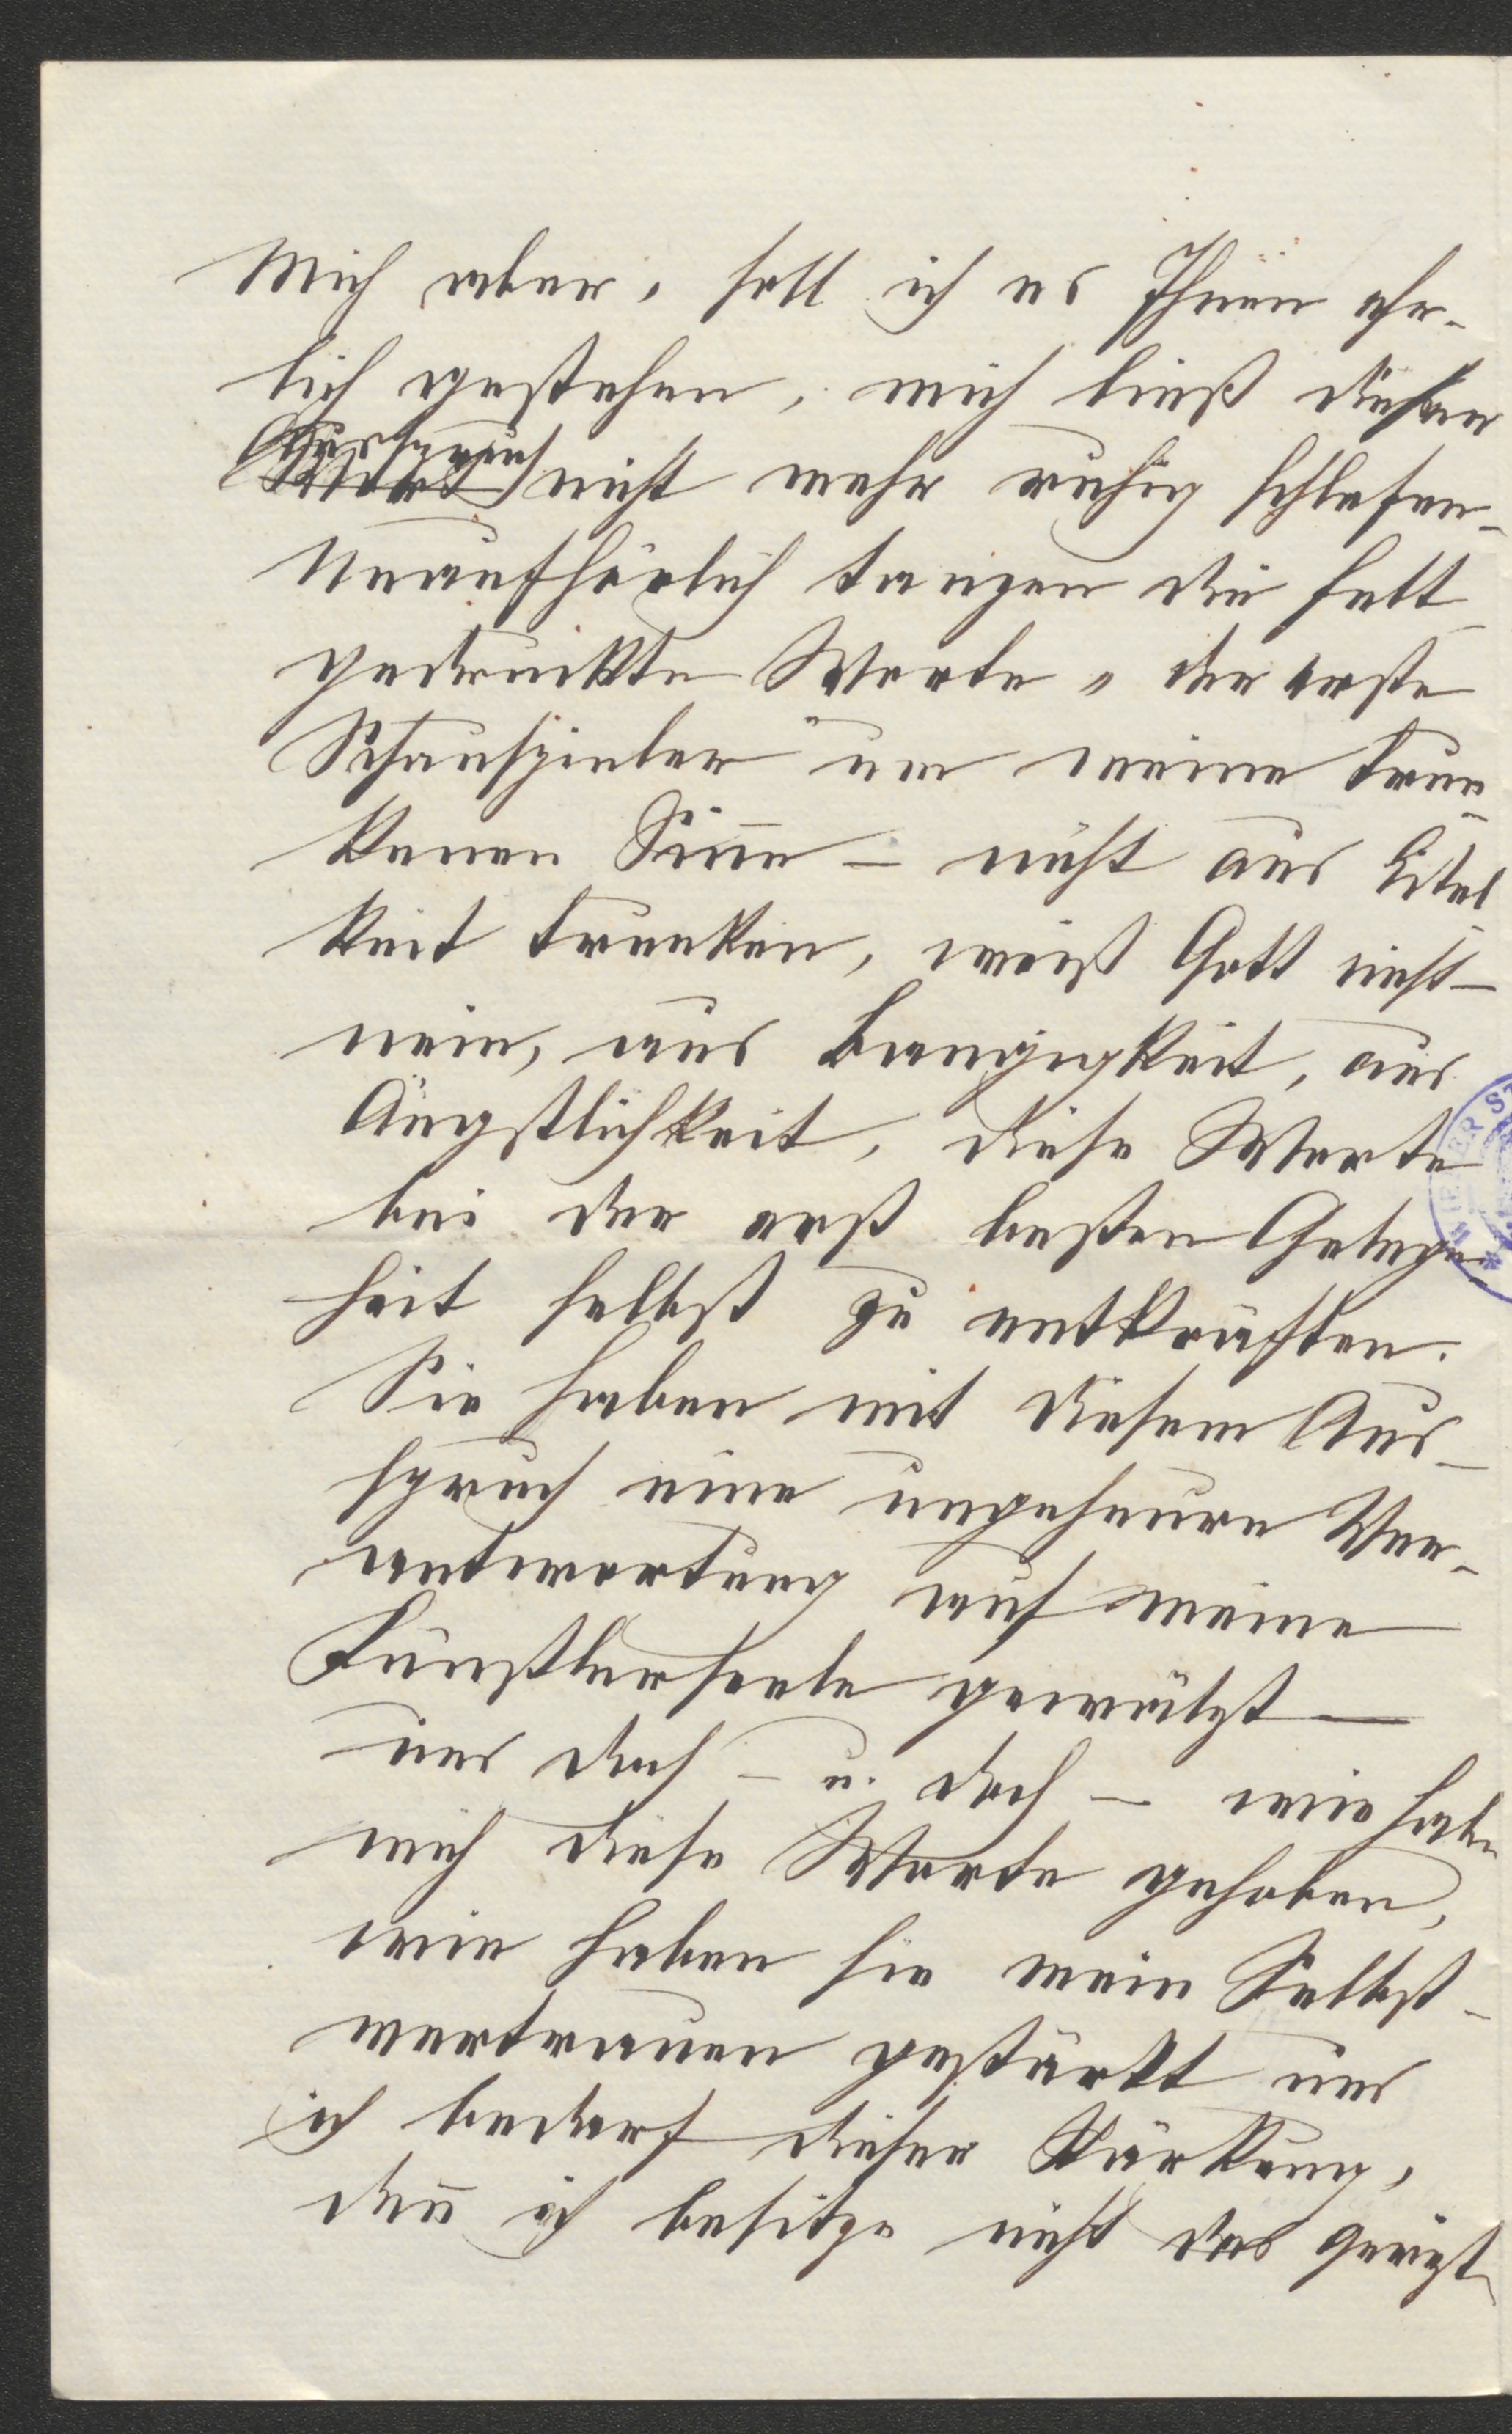 Mich aber, soll ich es Ihnen ehr-
lich gestehen, mich ließ dieser
Ausspruch nicht mehr ruhig schlafen-
Unaufhörlich tanzen die fett
gedruckte Worte „der erste
Schauspieler" um meine trun
kenen Sin̅e – nicht aus Eitel
keit trunken, weiß Gott nicht –
nein, aus Bangigkeit, aus
Ängstlichkeit, diese Worte
bei der erst besten Gelegen
heit selbst zu entkräften.
Sie haben mit diesem Aus-
spruch eine ungeheure Ver-
antwortung auf meine
Künstlerseele gewälzt –
und doch – u. doch – wie haben
mich diese Worte gehoben,
wie haben sie mein Selbst-
vertrauen gestärkt und
ich bedarf dieser Stärkung,
den̅ ich besitze nicht das